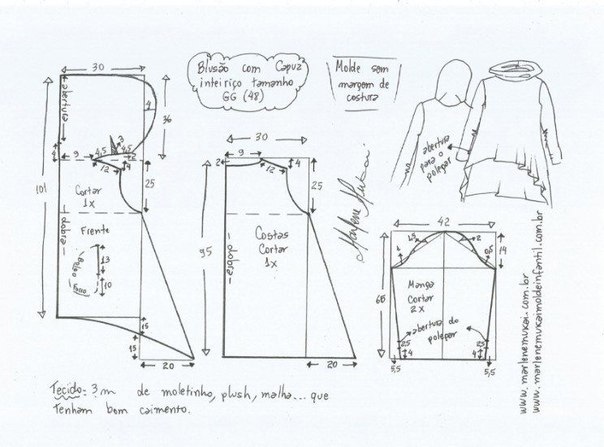 Blusão com Capuz
inteiriço tamanho
GG (48)
Molde sem
margem de
costura
30
abertura
4
36
3
4,5
4,5
2
4
9
12
4
25
101
Cortar
1x
dobra
Frente
Bolso
Falso
13
10
15
15
20
30
2
9
4
12
25
95
Costas
Cortar
1x
dobra
20
abertura
para o
polegar
Marlene Mukai
42
1,5
2
1
0,5
14
65
Manga
Cortar
2x
abertura do
polegar
25
25
4
4
5,5
5,5
www.marlenemukai.com.br
www.marlenemukaimoldeinfantil.com.br
Tecido: 3m de moletinho, plush, malha... que
tenham bom caimento.